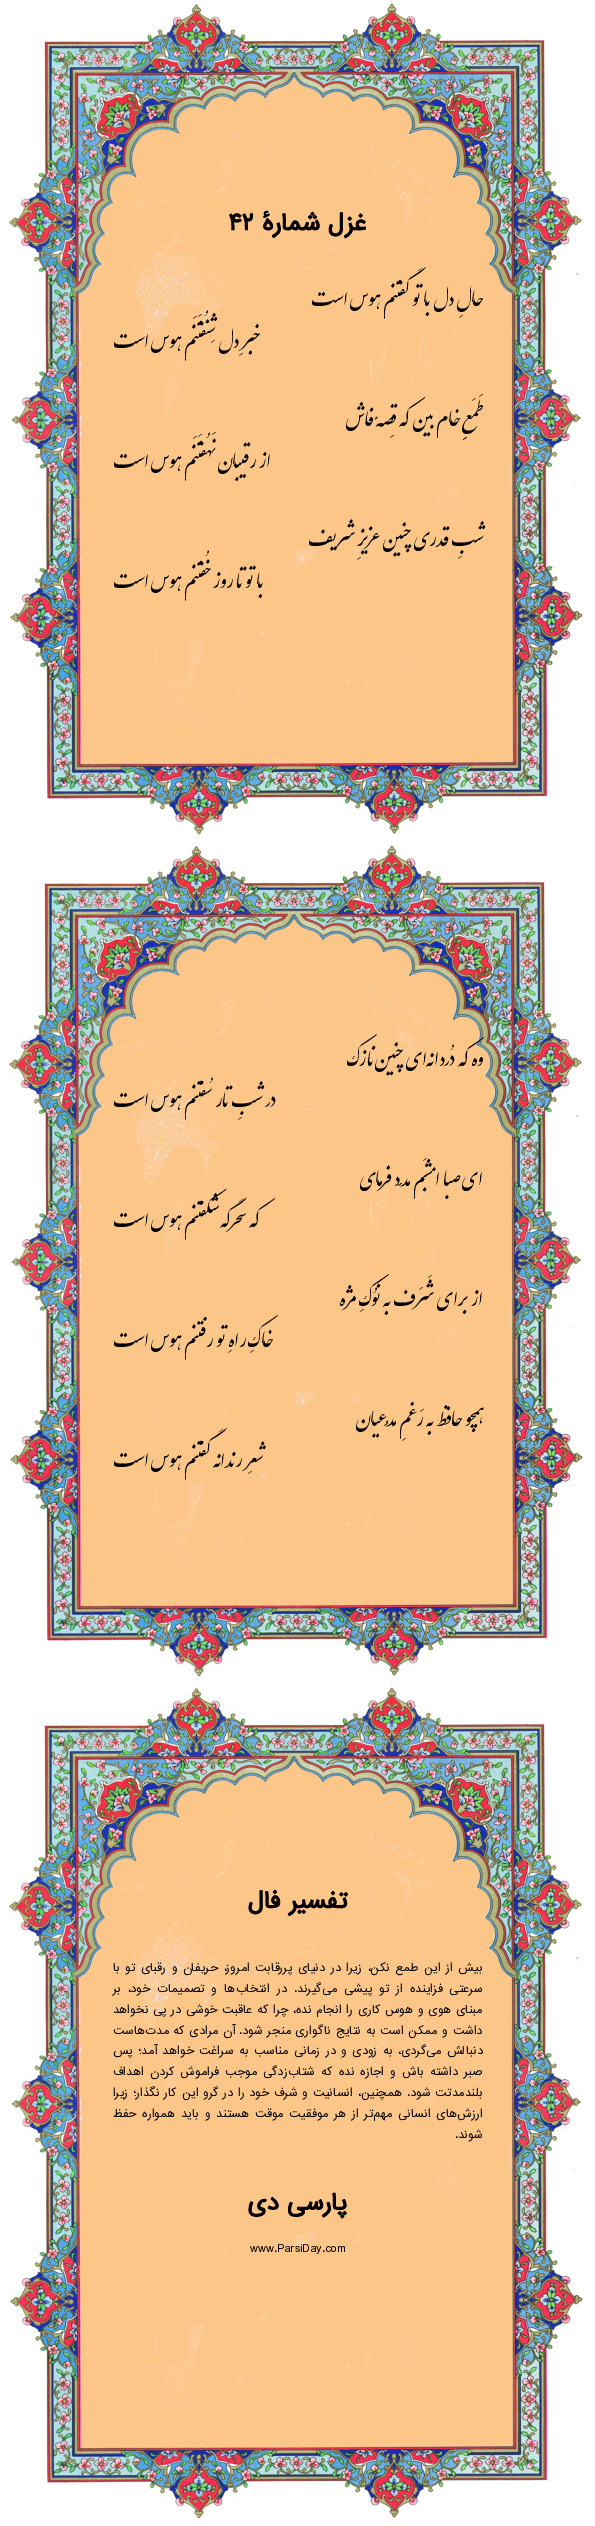 غزل شمارهٔ ۴۲
حالِ دل با تو گفتنم هوس است
خبرِ دل شِنُفتَنَم هوس است
طَمَعِ خام بین که قِصهٔ فاش
از رقیبان نَهُفتَنَم هوس است
شبِ قدری چنین عزیزِ شریف
با تو تا روز خُفتنم هوس است
وَه که دُردانه‌ای چنین نازک
در شبِ تار سُفتنم هوس است
ای صبا امشبم مدد فرمای
که سحرگه شکفتنم هوس است
از برای شَرَف به نوکِ مژه
خاکِ راهِ تو رفتنم هوس است
همچو حافظ به رَغمِ مدعیان
شعرِ رندانه گفتنم هوس است
تفسیر فال
بیش از این طمع نکن، زیرا در دنیای پررقابت امروز، حریفان و رقبای تو با
سرعتی فزاینده از تو پیشی می‌گیرند. در انتخاب‌ها و تصمیمات خود، بر
مبنای هوی و هوس کاری را انجام نده، چرا که عاقبت خوشی در پی نخواهد
داشت و ممکن است به نتایج ناگواری منجر شود. آن مرادی که مدت‌هاست
دنبالش می‌گردی، به زودی و در زمانی مناسب به سراغت خواهد آمد؛ پس
صبر داشته باش و اجازه نده که شتاب‌زدگی موجب فراموش کردن اهداف
بلندمدتت شود. همچنین، انسانیت و شرف خود را در گرو این کار نگذار؛ زیرا
ارزش‌های انسانی مهم‌تر از هر موفقیت موقت هستند و باید همواره حفظ
شوند.
پارسی دی
www.ParsiDay.com